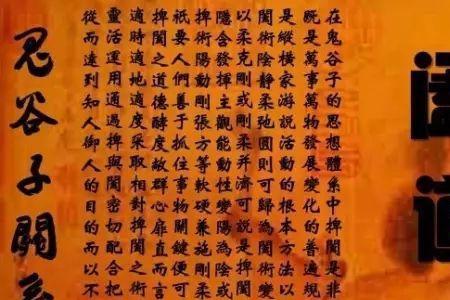 在鬼谷子的思想體系中捭闔是非
既是萬物發展變化的普遍規
是縱橫家游説活動的根本方法以
闔術陰静柔弛圓則可歸為闔術變
以柔克剛或剛柔并濟可説是捭闔
隱含發揮主觀能動性變陽為陰或
捭術陽動剛張方等軟硬兼施剛柔
祇要人們善于抓住事物關鍵便可
捭闔之道德度故心扉直而言
適時適地適度采取相對捭闔之術
靈活運用通過捭與闔密切配合把
從而達到知人御人的目的而以不
鬼谷子